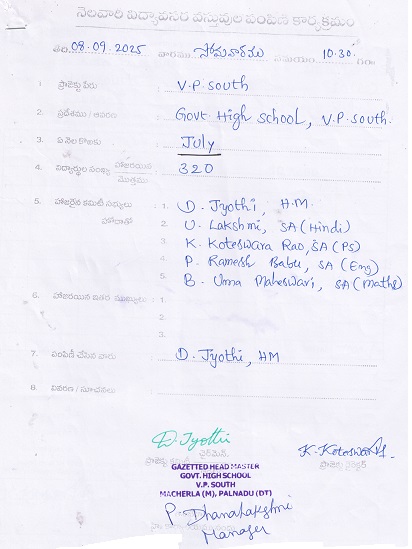 నెలవారి విద్యావసర వస్తువుల పంపిణి కార్యక్రమం
తేది 08.09.2025 వారము సోమవారము సమయం 10.30 గం॥
1. ప్రాజెక్టు పేరు : V.P. South
2. ప్రదేశము / ఆవరణ : Govt. High school, V.P. South.
3. ఏ నెల కొరకు : July
4. విద్యార్థుల సంఖ్య హాజరయిన : 320
మొత్తము
5. హాజరైన కమిటీ సభ్యులు : 1. D. Jyothi, H.M.
హోదాతో 2. U. Lakshmi, SA (Hindi)
3. K. Koteswara Rao, SA (PS)
4. P. Ramesh Babu, SA (Eng)
5. B. Uma Maheswari, SA (Maths)
6. హాజరయిన ఇతర ముఖ్యులు : 1.
2.
3.
7. పంపిణి చేసిన వారు : D. Jyothi, HM
8. వివరణ / సూచనలు
D. Jyothi
ప్రాజెక్టు కమిటీ ఛైర్మెన్.
K. Koteswara
ప్రాజెక్టు డైరెక్టర్
GAZETTED HEAD MASTER
GOVT. HIGH SCHOOL
V.P. SOUTH
MACHERLA (M), PALNADU (DT)
P. Dhanalakshmi
Manager